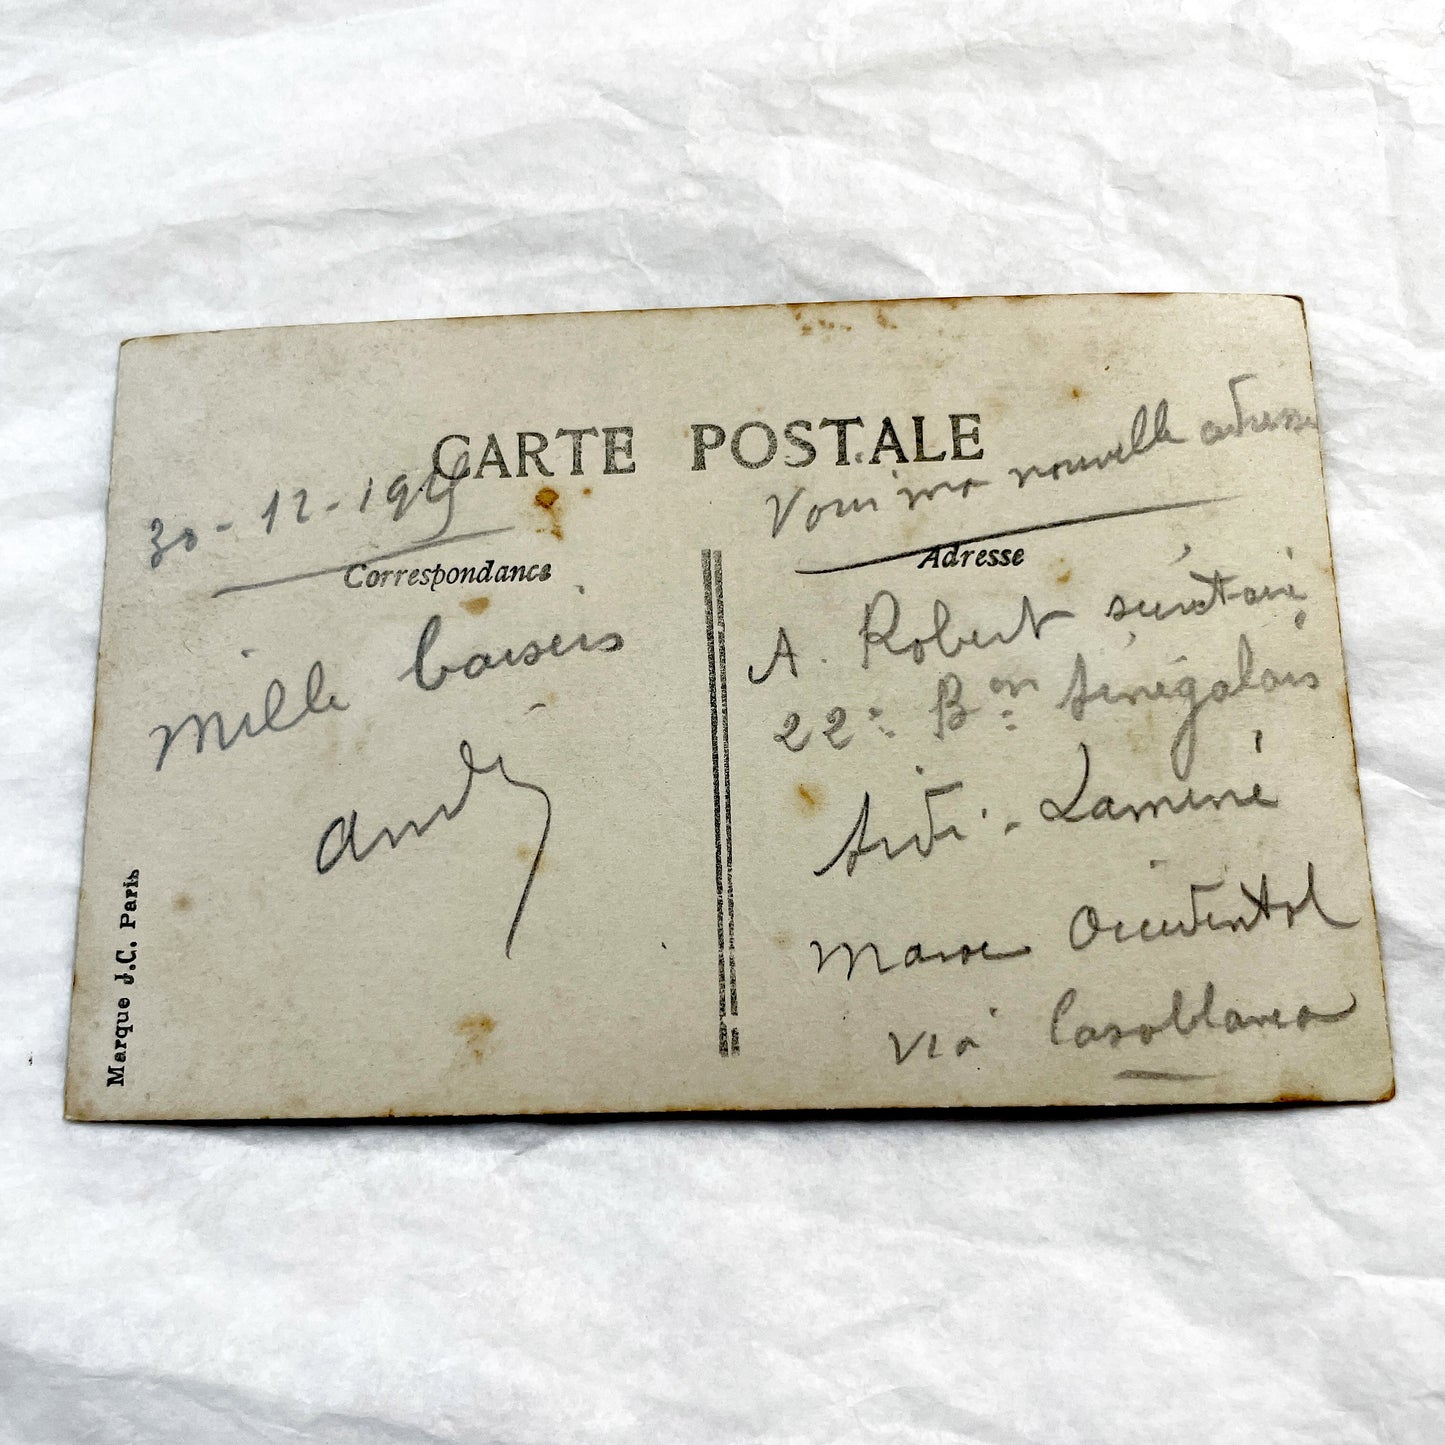 CARTE POSTALE
30-12-191
Correspondance
Mille baisers
André
Marque J.C. Paris
Voici ma nouvelle adresse
Adresse
A. Robert secrétaire
22e Bon Sénégalais
Sidi-Laminé
Maroc Occidental
via Casablanca